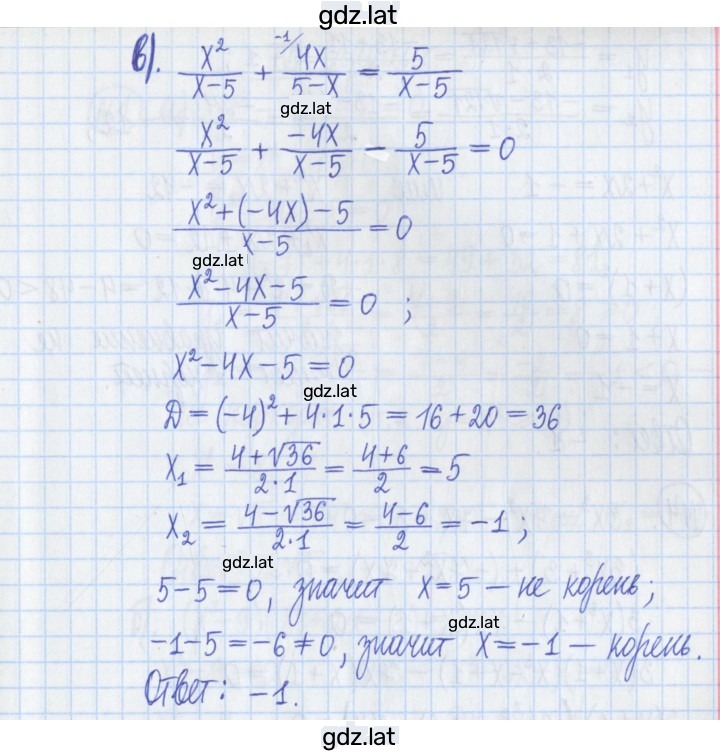 gdz.lat
в). x²/(x-5) + ⁻¹/4x/(5-x) = 5/(x-5)
gdz.lat
x²/(x-5) + -4x/(x-5) - 5/(x-5) = 0
x²+(-4x)-5/(x-5) = 0
gdz.lat
x²-4x-5/(x-5) = 0 ;
x²-4x-5=0
gdz.lat
D=(-4)²+4·1·5=16+20=36
x₁ = (4+√36)/(2·1) = (4+6)/2 = 5
x₂ = (4-√36)/(2·1) = (4-6)/2 = -1 ;
gdz.lat
5-5=0, значит x=5 – не корень;
gdz.lat
-1-5=-6≠0, значит x=-1 – корень.
Ответ: -1.
gdz.lat